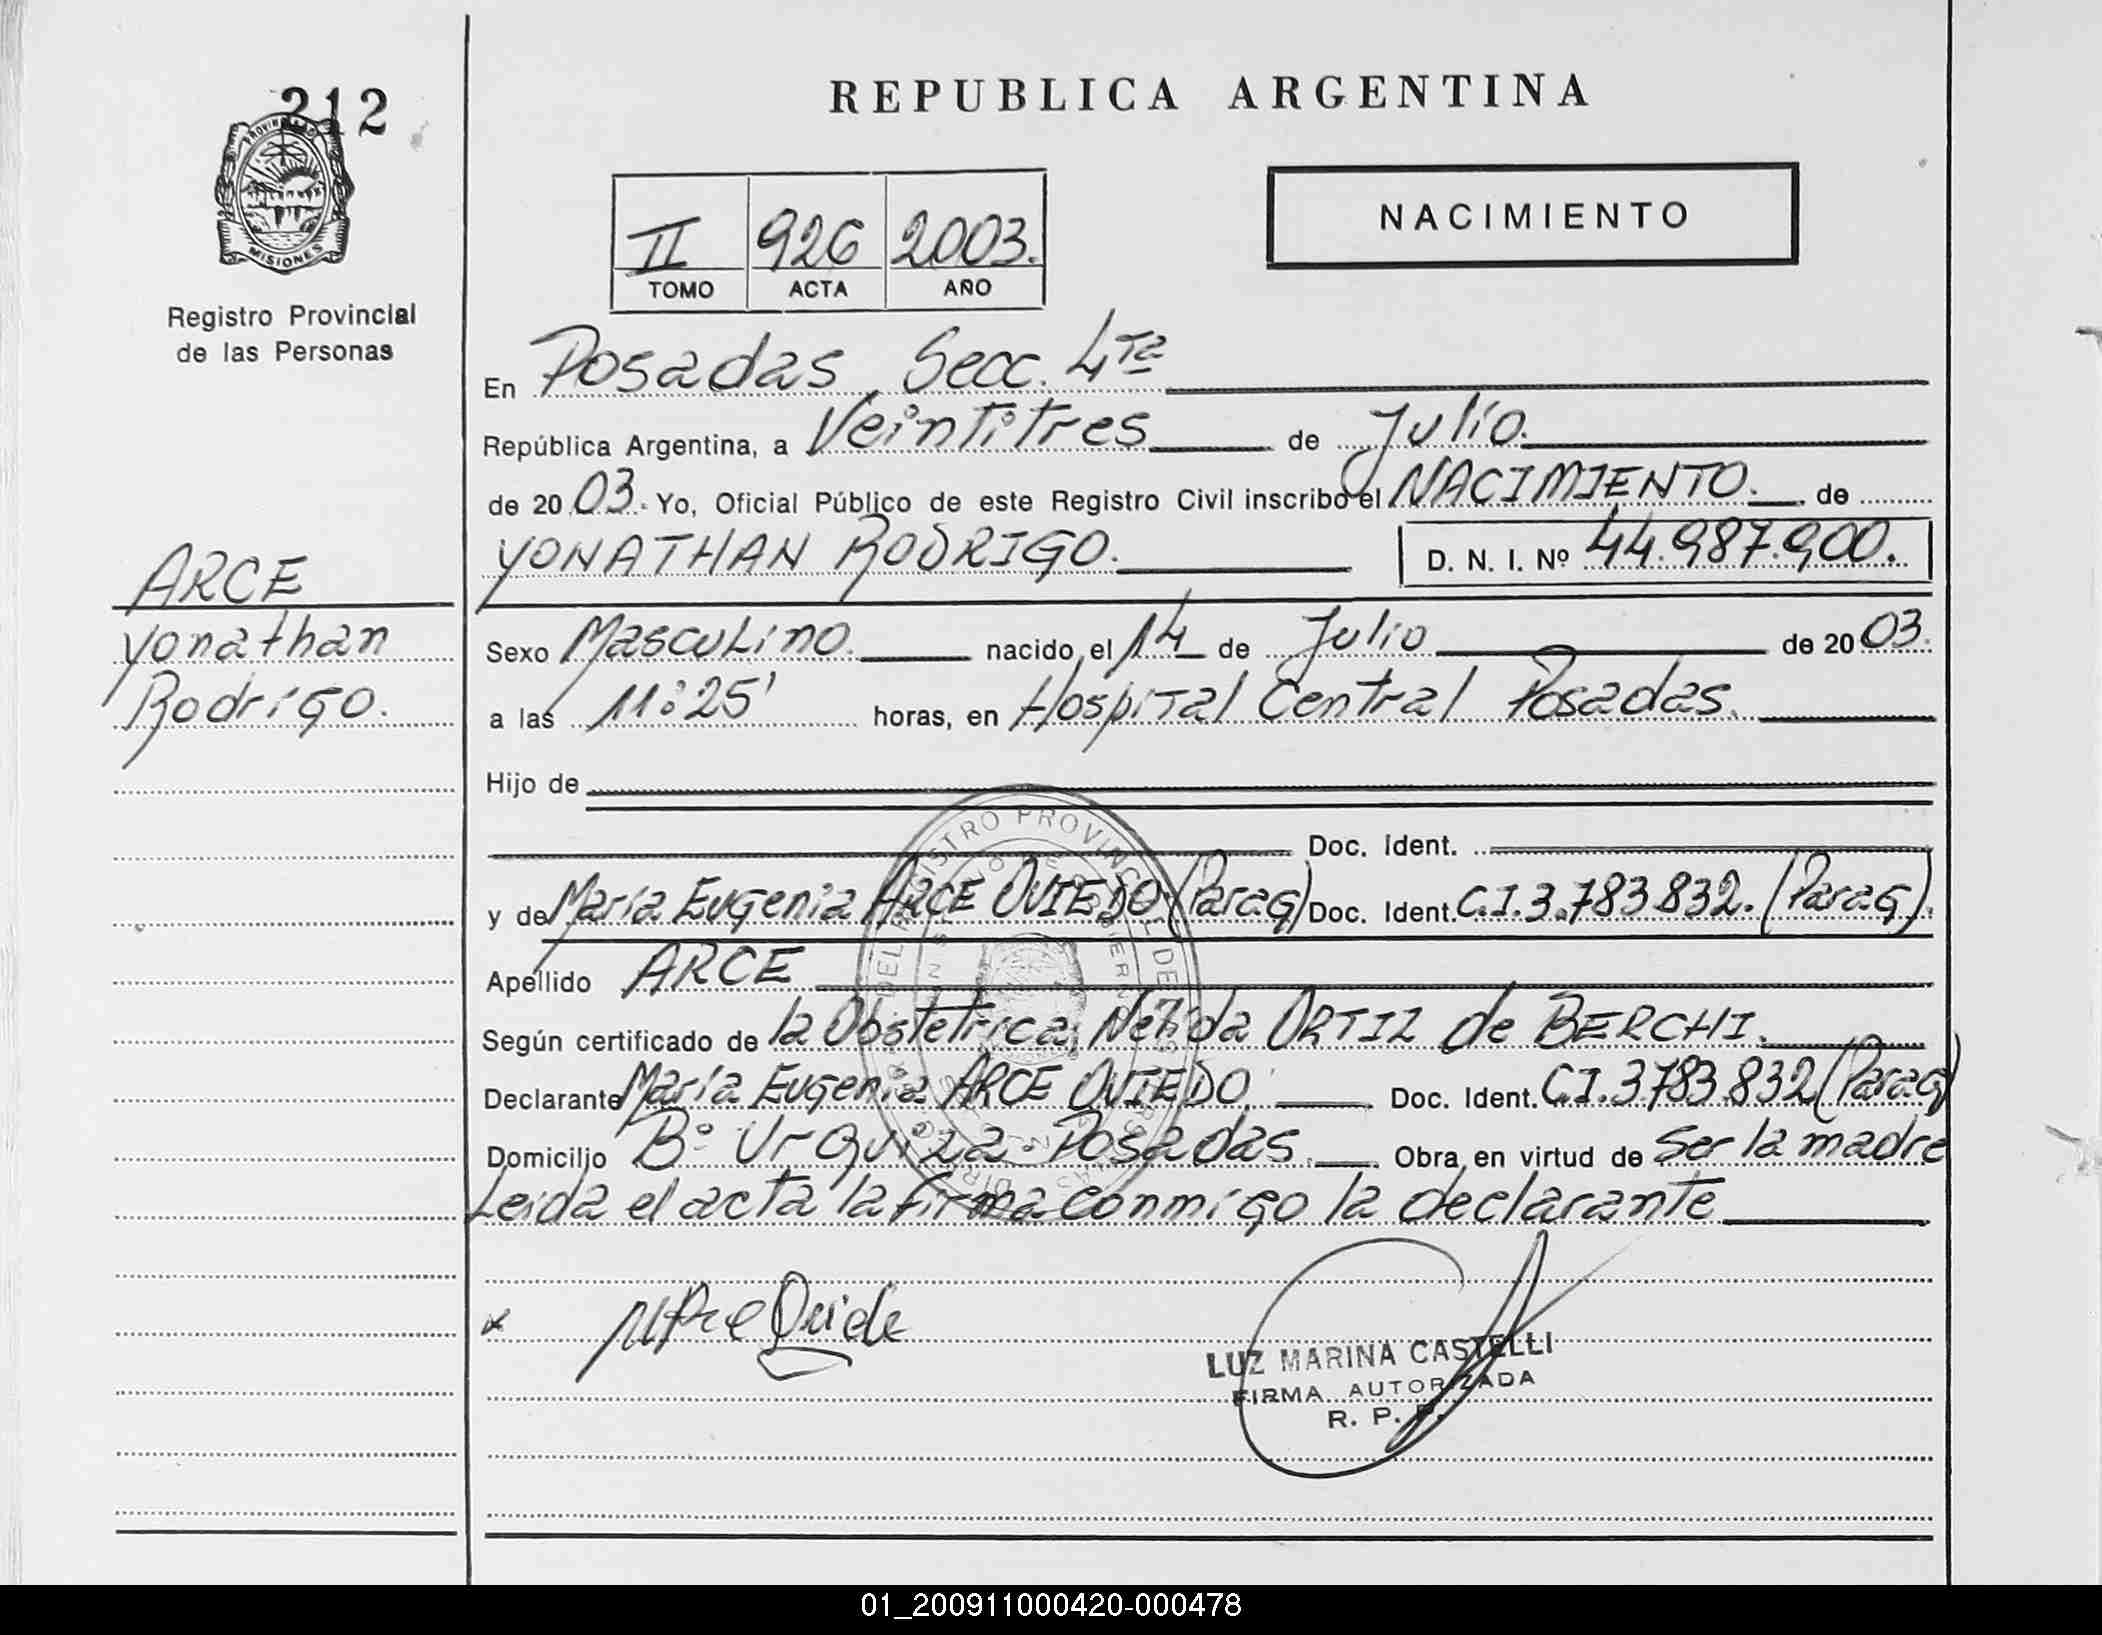 212
PROVINCIA DE
MISIONES
Registro Provincial
de las Personas
REPUBLICA ARGENTINA
II 926 2003.
TOMO ACTA AÑO
NACIMIENTO
En Posadas Secc. 4ta
República Argentina, a Veintitres de Julio.
de 20 03. Yo, Oficial Público de este Registro Civil inscribo el NACIMIENTO. de
YONATHAN RODRIGO. D. N. I. Nº 44.987.900.
ARCE
Yonathan
Rodrigo.
Sexo Masculino. nacido el 14 de Julio de 20 03.
a las 11:25' horas, en Hospital Central Posadas.
Hijo de
Doc. Ident.
y de María Eugenia ARCE OVIEDO. (Parag) Doc. Ident. C.I. 3.783.832. (Parag).
Apellido ARCE
Según certificado de la Obstetrica, Nélida ORTIZ de BERCHI.
Declarante María Eugenia ARCE OVIEDO. Doc. Ident. C.I. 3.783.832 (Parag)
Domicilio Bº Urquiza - Posadas. Obra en virtud de Ser la madre
Leida el acta la firma conmigo la declarante
LUZ MARINA CASTELLI
FIRMA AUTORIZADA
R. P. P.
01_200911000420-000478